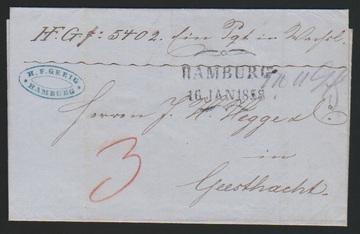 H. G. f: 5402. Ein Pgt in Wachsl.
H. F. GEEIG
HAMBURG
HAMBURG
16 JAN 1858
Herrn J. H. Wegge
3
in
Geesthacht.